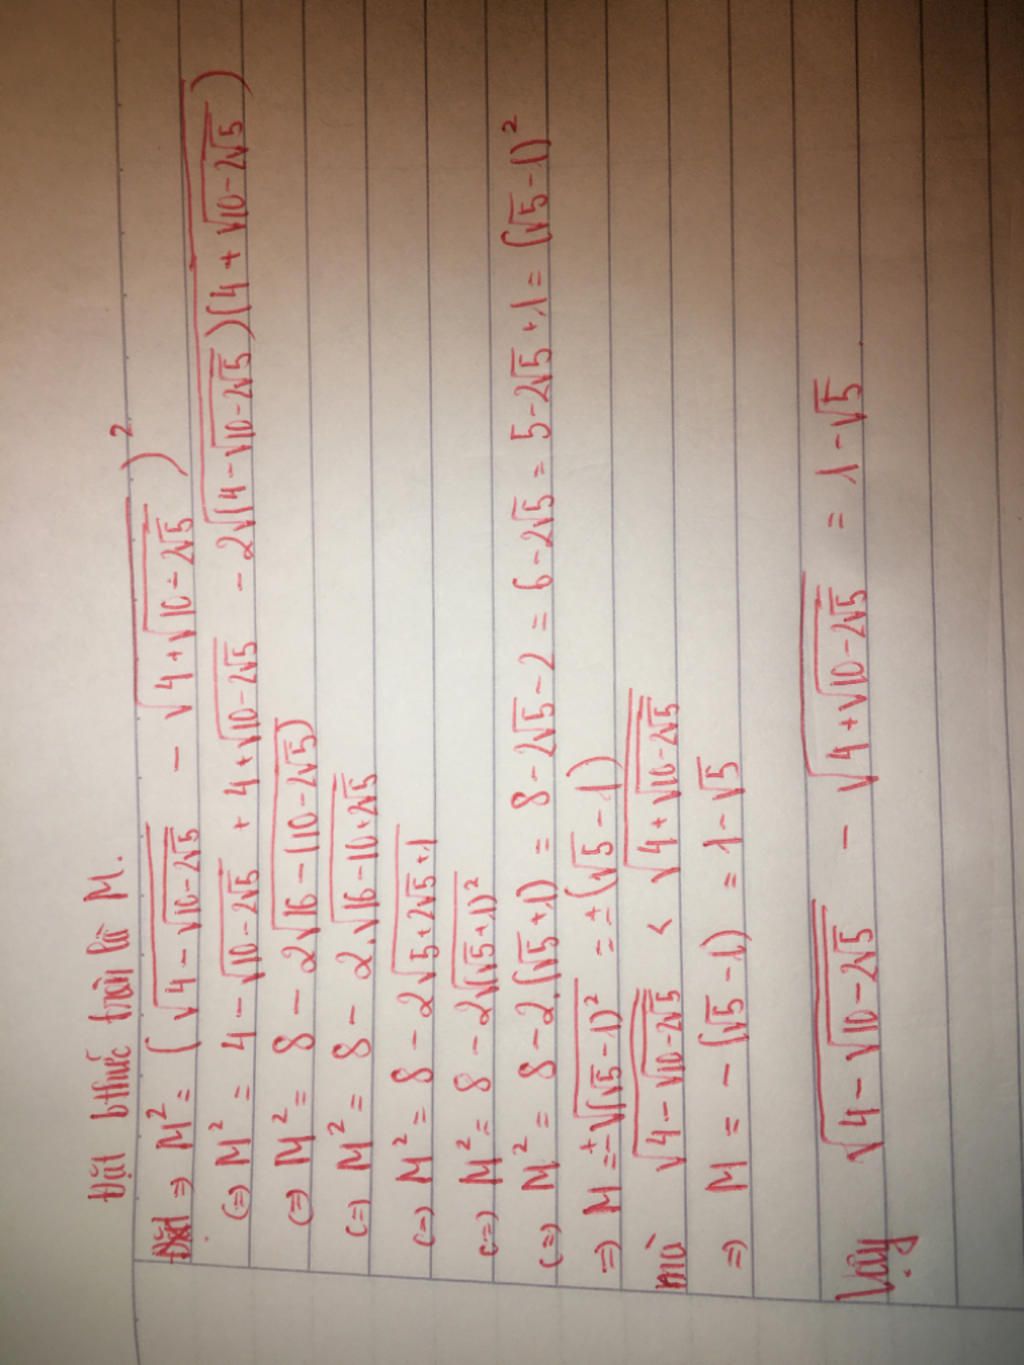 Đặt bthức trên là M.
⇒ M² = (√(4-√(10-2√5)) - √(4+√(10-2√5)))²
(=) M² = 4-√(10-2√5) + 4+√(10-2√5) - 2√((4-√(10-2√5))(4+√(10-2√5)))
(=) M² = 8 - 2√(16-(10-2√5))
(=) M² = 8 - 2.√(16-10+2√5)
(=) M² = 8 - 2√(5+2√5+1)
(=) M² = 8 - 2√((√5+1)²)
(=) M² = 8-2.(√5+1) = 8-2√5-2 = 6-2√5 = 5-2√5+1 = (√5-1)²
⇒ M = ±√((√5-1)²) = ±(√5-1)
mà √(4-√(10-2√5)) < √(4+√(10-2√5))
⇒ M = -(√5-1) = 1-√5
Vậy √(4-√(10-2√5)) - √(4+√(10-2√5)) = 1-√5.